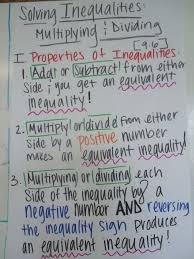 Solving Inequalities:
Multiplying & Dividing
[9.6]
I. Properties of Inequalities
1. Add or Subtract from either
side; you get an equivalent
inequality!
2. Multiply or divide from either
side by a positive number
makes an equivalent inequality!
3. Multiplying or dividing each
side of the inequality by a
negative number AND reversing
the inequality sign produces
an equivalent inequality!